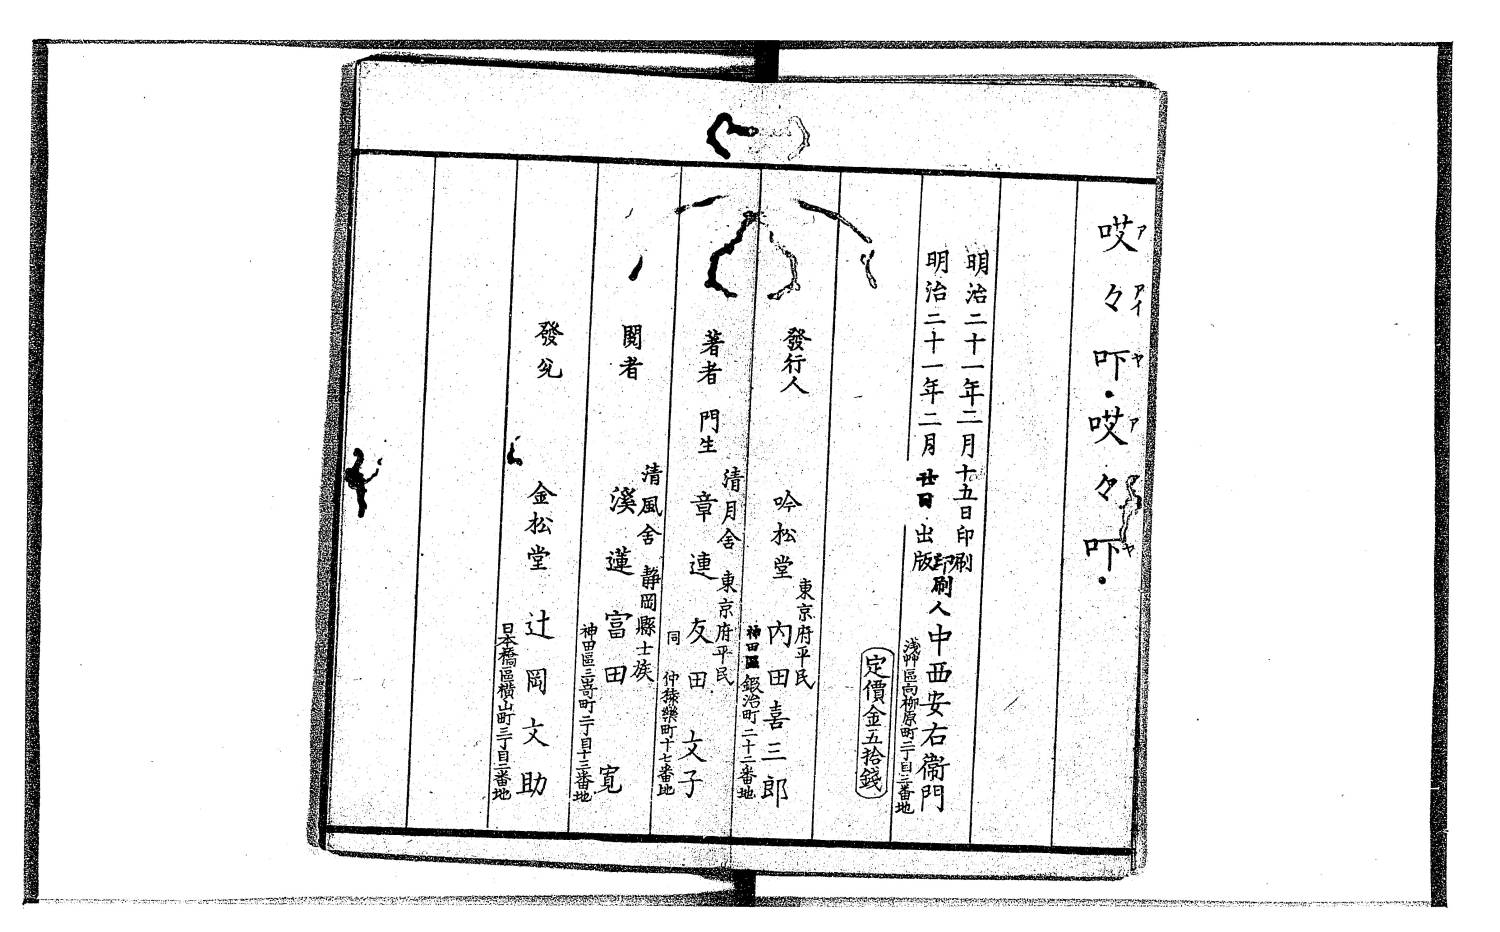 哎々吓・哎々吓・
アアイヤアヤ
明治二十一年二月十五日印刷
明治二十一年二月廿日出版
印刷人 中西安右衞門
浅艸區向柳原町二丁目三番地
定價金五拾錢
東京府平民
發行人 吟松堂 内田喜三郎
神田區鍛治町二十二番地
清月舍 東京府平民
著者 門生 章連 友田文子
同 仲猿樂町十七番地
清風舍 静岡縣士族
閲者 溪蓮 富田寛
神田區三﨑町二丁目十三番地
發兌 金松堂 辻岡文助
日本橋區横山町三丁目二番地